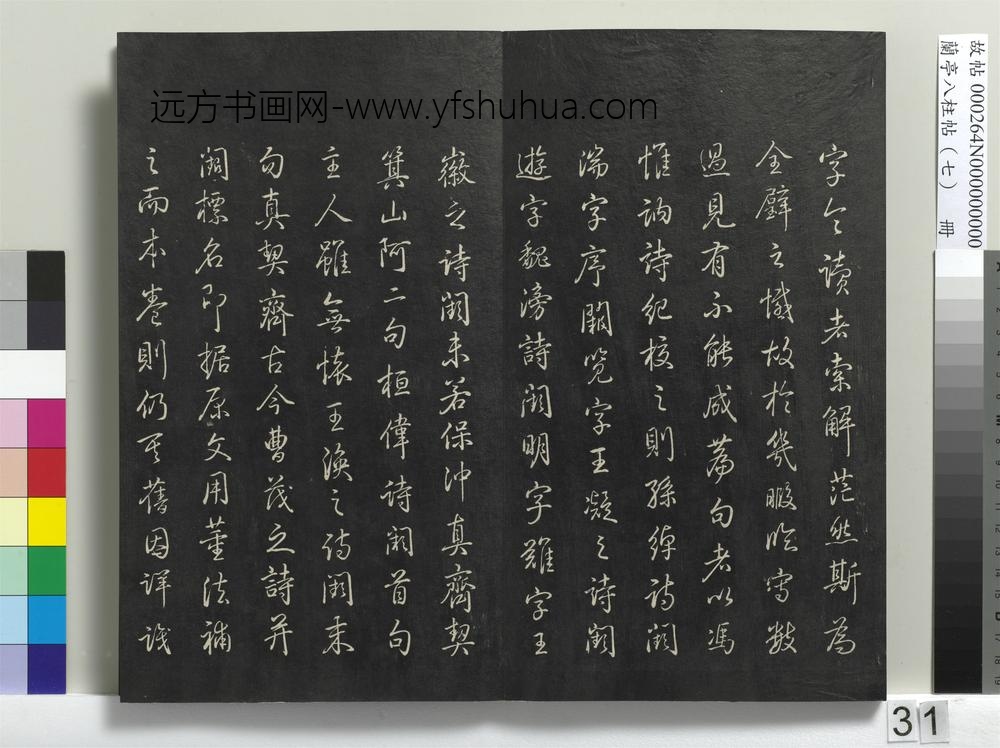 远方书画网-www.yfshuhua.com
字令讀者索解茫然斯為
全璧之憾故於幾暇臨寫數
過見有不能成篇句者以馮
惟訥詩紀校之則孫綽詩闕
湍字序闕覽字王凝之詩闕
遊字魏滂詩闕明字難字王
徽之詩闕未若保沖真齊契
箕山阿二句桓偉詩闕首句
主人雖無懷王渙之詩闕末
句真契齊古今曹茂之詩并
闕標名即据原文用董法補
之而本卷則仍其舊因詳識
故帖 000264N000000000
蘭亭八柱帖（七） 冊
31